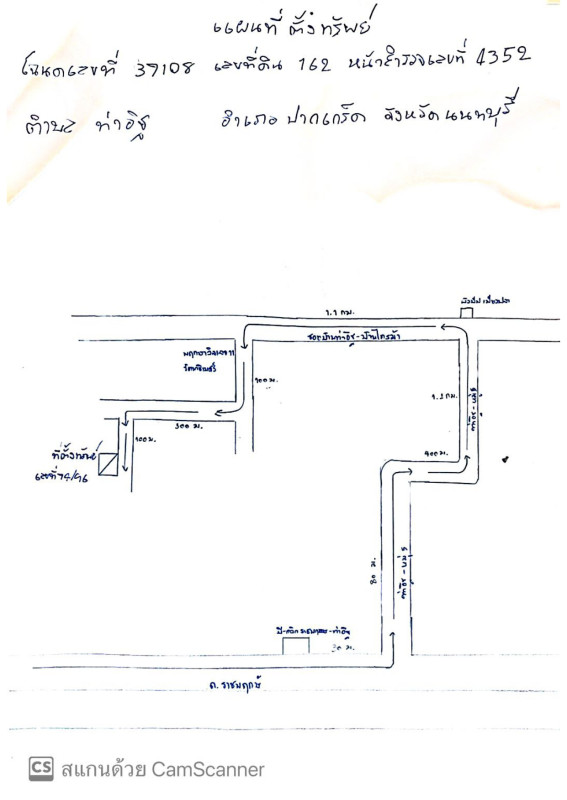 แผนที่ ตั้งทรัพย์
โฉนดเลขที่ 37108 เลขที่ดิน 162 หน้าสำรวจเลขที่ 4352
ตำบล ท่าอิฐ อำเภอ ปากเกร็ด จังหวัด นนทบุรี
1.1 กม.
ซอยบ้านท่าอิฐ-บ้านไทรม้า
พฤกษาวิลเลจ 11
รัตนาธิเบศร์
100 ม.
1.2 กม.
300 ม.
100 ม.
400 ม.
ที่ตั้งทรัพย์
เลขที่ 74/96
80 ม.
30 ม.
ถ. ราชพฤกษ์
CS สแกนด้วย CamScanner